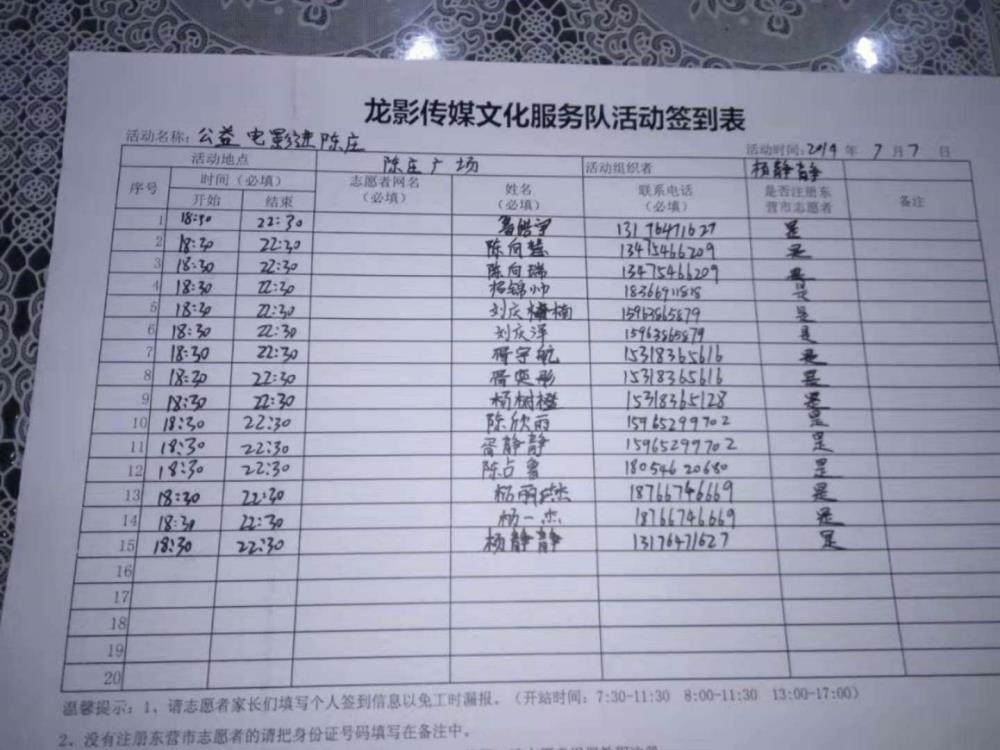 龙影传媒文化服务队活动签到表
活动名称：公益电影进陈庄 活动时间：2019 年 7 月 7 日
活动地点 陈庄广场 活动组织者 杨静静
序号 时间（必填） 志愿者网名（必填） 姓名（必填） 联系电话（必填） 是否注册东营市志愿者 备注
开始 结束
1 18:30 22:30 13176471627 是
2 18:30 22:30 陈向慧 13475466209 是
3 18:30 22:30 陈向瑞 13475466209 是
4 18:30 22:30 杨锦帅 是
5 18:30 22:30 刘庆楠 15963865879 是
6 18:30 22:30 刘庆泽 15963865879 是
7 18:30 22:30 胥宇航 15318365616 是
8 18:30 22:30 胥奕彤 15318365616 是
9 18:30 22:30 杨树橙 15318365128 是
10 18:30 22:30 陈欣丽 15965299702 是
11 18:30 22:30 胥静静 15965299702 是
12 18:30 22:30 陈占鲁 18054620680 是
13 18:30 22:30 18766746669 是
14 18:30 22:30 杨一杰 18766746669 是
15 18:30 22:30 杨静静 13176471627 是
16
17
18
19
20
温馨提示：1、请志愿者家长们填写个人签到信息以免工时漏报。（开站时间：7:30-11:30 8:00-11:30 13:00-17:00）
2、没有注册东营市志愿者的请把身份证号码填写在备注中。